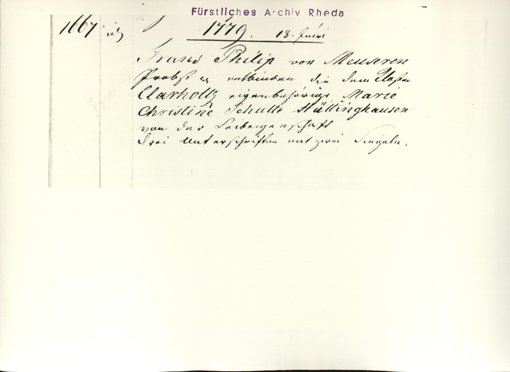 Fürstliches Archiv Rheda
1667
1779. 18. Juni
Franz Philip von Meuseren
Probst entbinden die dem Closter
Clarholtz eigenbehörige Marie
Christine Schulte Hüttinghausen
von der Leibeigenschaft
Drei Unterschriften mit zwei Siegeln.